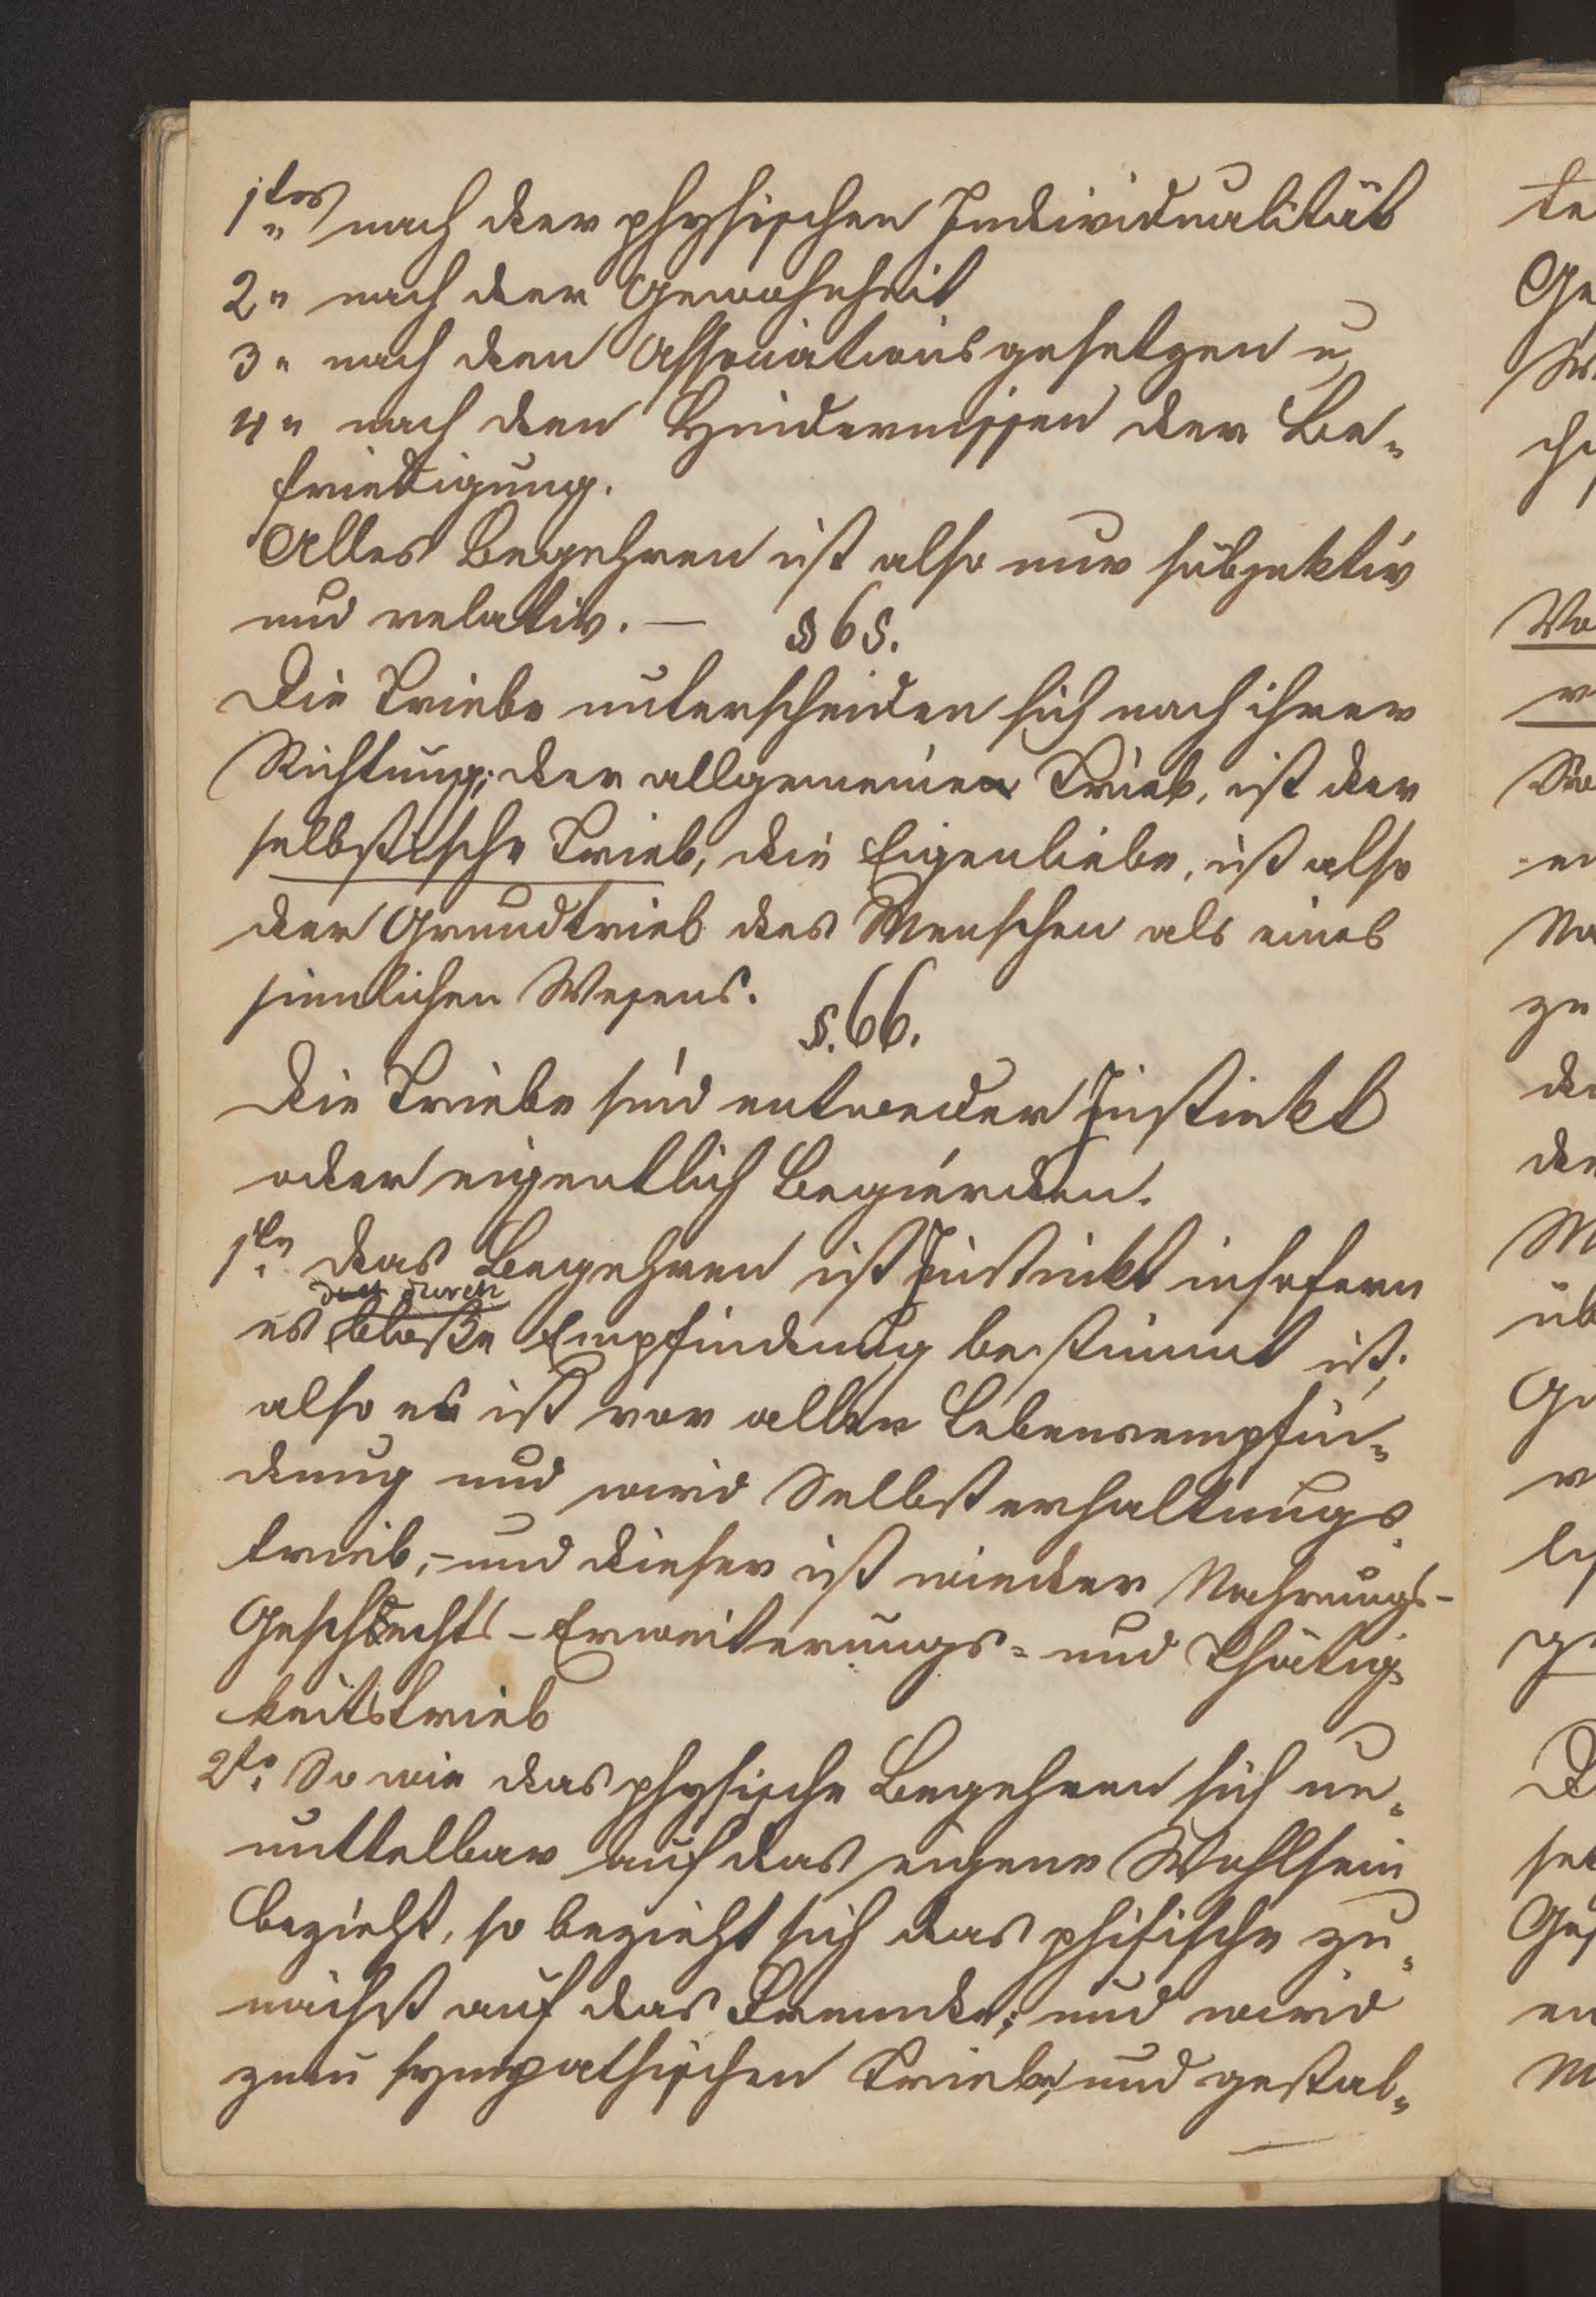 1tens nach der physischen Individualität
2" nach der Gewohnheit
3" nach den Assoziationsgesetzen u
4" nach den Hindernissen der Be-
friedigung.
Alles Begehren ist also nur subjektiv
und relativ. — § 65.
Die Triebe unterscheiden sich nach ihrer
Richtung; der allgemeine Trieb, ist der
selbstische Trieb, die Eigenliebe, ist also
der Grundtrieb des Menschen als eines
sinnlichen Wesens.
§. 66.
Die Triebe sind entweder Instinkt
oder eigentlich Begierden.
1tn das Begehren ist Instinkt insofern
durch
es bloße Empfindung bestimmt ist;
also es ist vor aller Lebensempfin-
dung und wird Selbsterhaltungs
trieb, - und dieser ist wieder Nahrungs-
Geschlechts - Erweiterungs- und Thätig-
keitstrieb
2te So wie das physische Begehren sich un-
mittelbar auf das eigene Wohlsein
bezieht, so bezieht sich das phisische zu-
nächst auf das Fremde; und wird
zum sympathischen Triebe, und gestal-